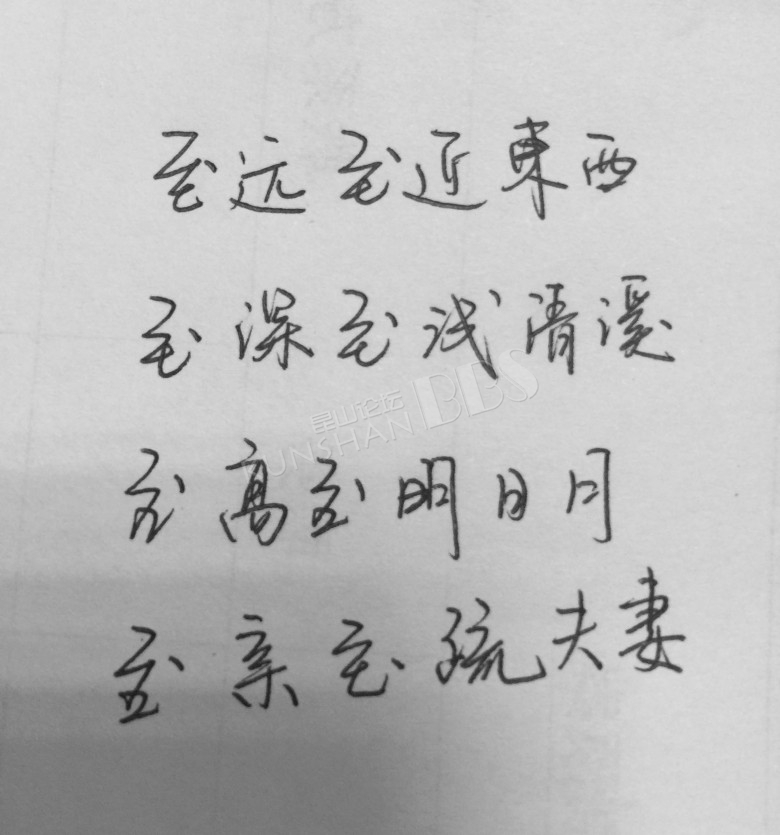 至远至近東西
至深至浅清溪
昆山论坛 BBS
KUNSHAN
至高至明日月
至亲至疏夫妻